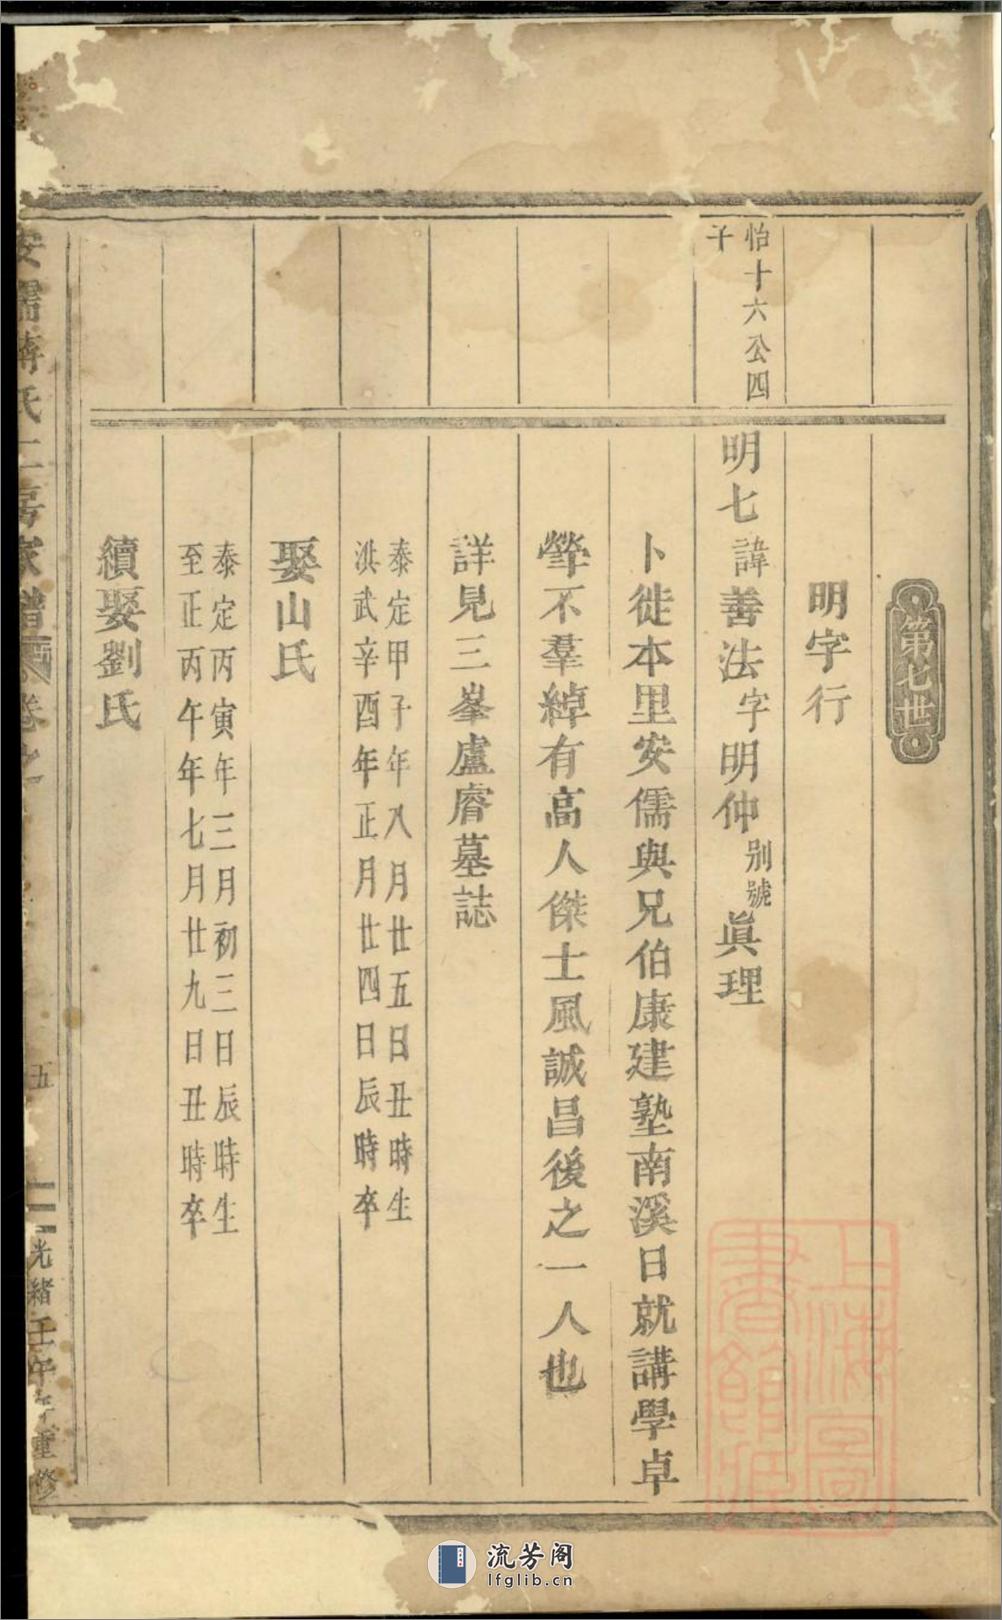 第七世
明字行
怡十六公四
子
明七諱善法字明仲別號眞理
卜徙本里安儒與兄伯康建塾南溪日就講學卓
犖不羣綽有高人傑士風誠昌後之一人也
詳見三峯盧睿墓誌
泰定甲子年八月廿五日丑時生
洪武辛酉年正月廿四日辰時卒
娶山氏
泰定丙寅年三月初三日辰時生
至正丙午年七月廿九日丑時卒
續娶劉氏
安儒蔣氏二房家譜 卷之
五
光緒壬午年重修
上海圖書館藏
流芳阁
lfglib.cn